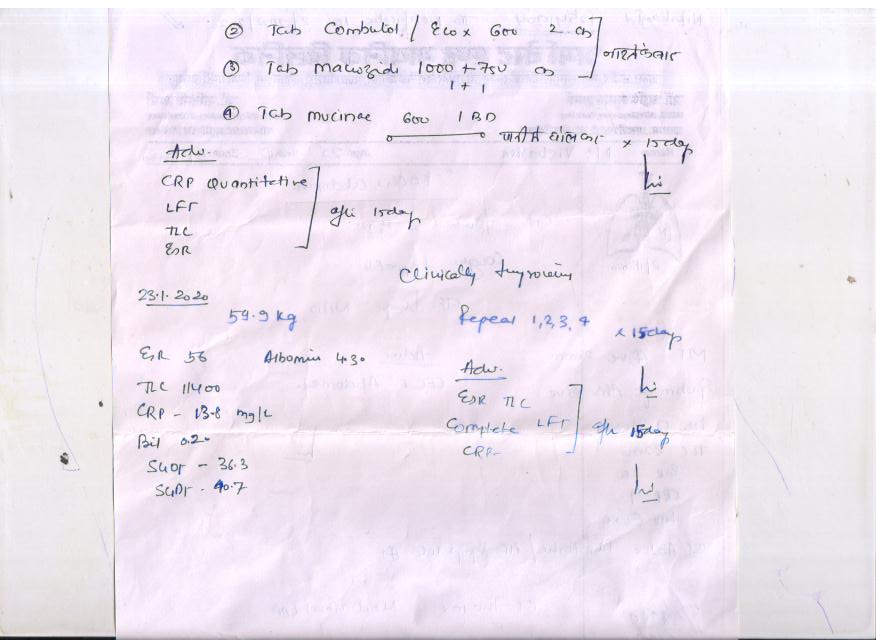 ② Tab Combutol / Ecox 600 2 OD
③ Tab Macrozide 1000 + 750 OD
1 + 1
④ Tab mucinac 600 1 BD
x 15 day
Adv.
CRP Quantitative
LFT
TLC
ESR
after 15 day
Clinically Improving
23.1.2020
59.9 kg
Repeat 1, 2, 3, 4 x 15 day
ESR 56 Albomin 4.30
Adv.
TLC 11400
ESR TLC
CRP - 13.8 mg/L
Complete LFT after 15 day
Bil 0.20
CRP
SGOT - 36.3
SGPT - 40.7